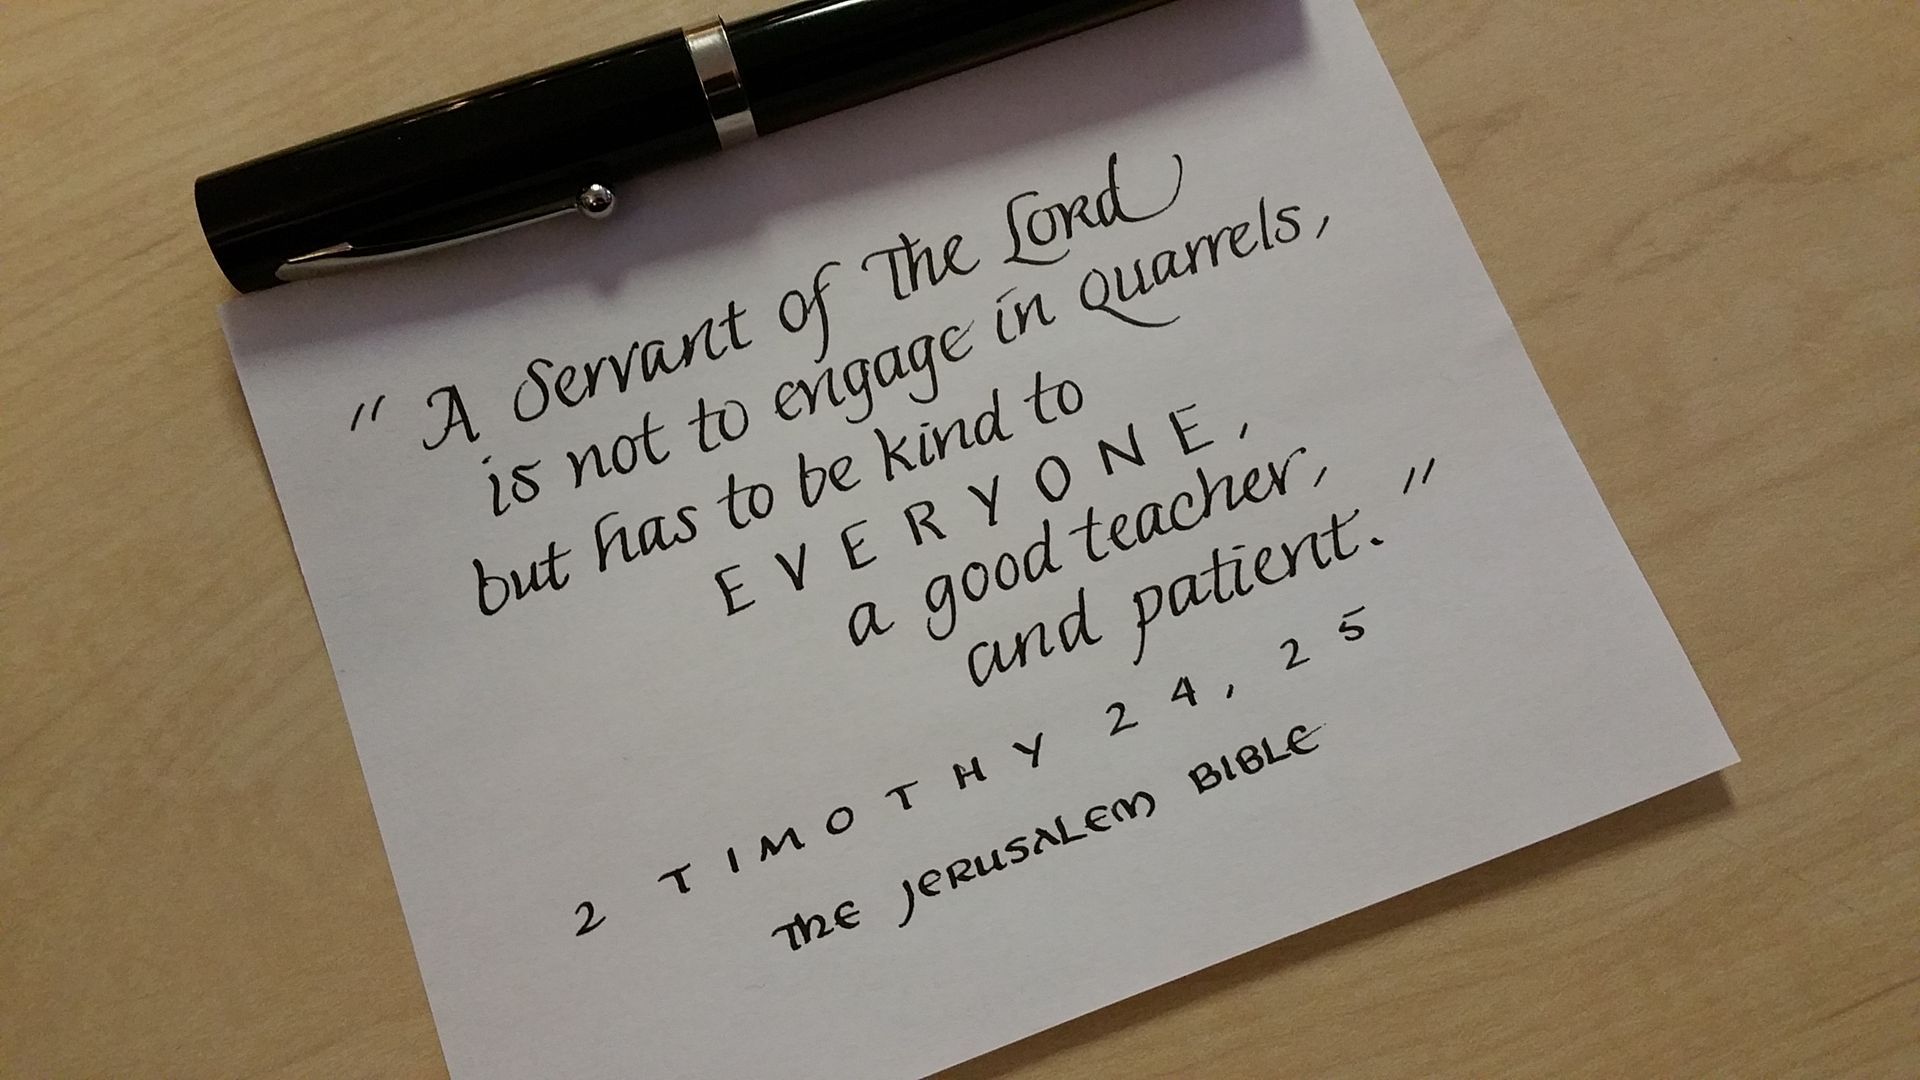 " A Servant of The Lord
is not to engage in Quarrels,
but has to be kind to
EVERYONE,
a good teacher,
and patient. "
2 TIMOTHY 24, 25
THE JERUSALEM BIBLE